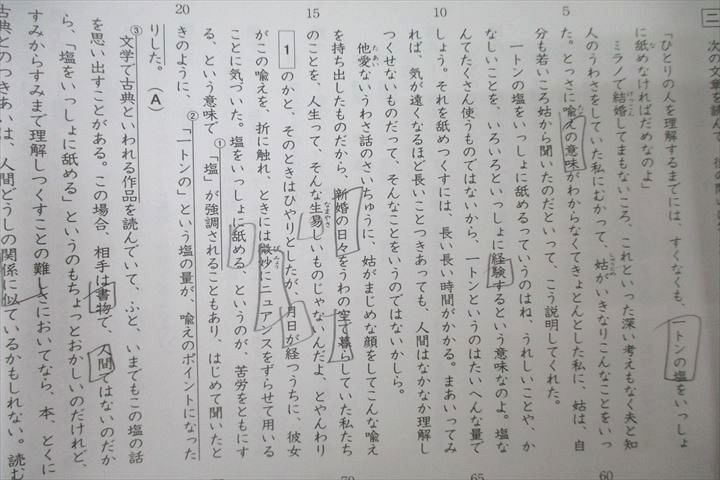 三 次の文章を読んで、後の問
「ひとりの人を理解するまでには、すくなくも、一トンの塩をいっしょ
に舐めなければだめなのよ」
ミラノで結婚してまもないころ、これといった深い考えもなく夫と知
人のうわさをしていた私にむかって、姑がいきなりこんなことをいっ
5
た。とっさに喩えの意味がわからなくてきょとんとした私に、姑は、自
分も若いころ姑から聞いたのだといって、こう説明してくれた。
一トンの塩をいっしょに舐めるっていうのはね、うれしいことや、か
なしいことを、いろいろといっしょに経験するという意味なのよ。塩な
んてたくさん使うものではないから、一トンというのはたいへんな量で
10
しょう。それを舐めつくすには、長い長い時間がかかる。まあいってみ
れば、気が遠くなるほど長いことつきあっても、人間はなかなか理解し
つくせないものだって、そんなことをいうのではないかしら。
他愛ないうわさ話のさいちゅうに、姑がまじめな顔をしてこんな喩え
を持ち出したものだから、新婚の日々をうわの空で暮らしていた私たち
15
のことを、人生って、そんな生易しいものじゃないんだよ、とやんわり
1 のかと、そのときはひやりとしたが、月日が経つうちに、彼女
がこの喩えを、折に触れ、ときには微妙にニュアンスをずらせて用いる
ことに気づいた。塩をいっしょに舐める、というのが、苦労をともにす
る、という意味で①「塩」が強調されることもあり、はじめて聞いたと
20
きのように、②「一トンの」という塩の量が、喩えのポイントになった
りした。(A)
③文学で古典といわれる作品を読んでいて、ふと、いまでもこの塩の話
を思い出すことがある。この場合、相手は書物で、人間ではないのだか
ら、「塩をいっしょに舐める」というのもちょっとおかしいのだけれど、
すみからすみまで理解しつくすことの難しさにおいてなら、本、とくに
古典とのつきあいは、人間どうしの関係に似ているかもしれない。読む
60
65
70